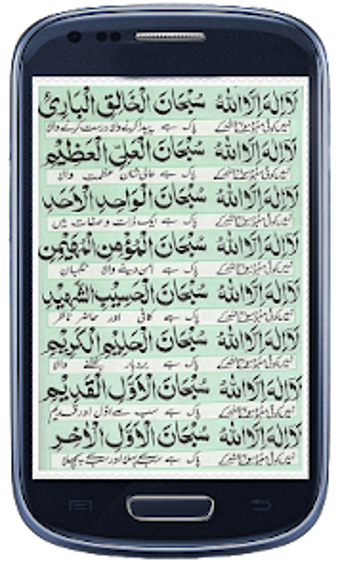 لَا إِلٰهَ إِلَّا اللهُ سُبْحَانَ الْخَالِقِ الْبَارِئِ
نہیں کوئی معبود سوا اللہ کے پاک ہے پیدا کرنے والا درست کرنے والا
لَا إِلٰهَ إِلَّا اللهُ سُبْحَانَ الْعَلِيِّ الْعَظِيْمِ
نہیں کوئی معبود سوا اللہ کے پاک ہے عالی شان عظمت والا
لَا إِلٰهَ إِلَّا اللهُ سُبْحَانَ الْوَاحِدِ الْاَحَدِ
نہیں کوئی معبود سوا اللہ کے پاک ہے ایک ذات و صفات میں
لَا إِلٰهَ إِلَّا اللهُ سُبْحَانَ الْمُؤْمِنِ الْمُهَيْمِنِ
نہیں کوئی معبود سوا اللہ کے پاک ہے امن دینے والا نگہبان
لَا إِلٰهَ إِلَّا اللهُ سُبْحَانَ الْحَسِيْبِ الشَّهِيْدِ
نہیں کوئی معبود سوا اللہ کے پاک ہے کافی اور حاضر ناظر
لَا إِلٰهَ إِلَّا اللهُ سُبْحَانَ الْحَلِيْمِ الْكَرِيْمِ
نہیں کوئی معبود سوا اللہ کے پاک ہے بردبار بخشنے والا
لَا إِلٰهَ إِلَّا اللهُ سُبْحَانَ الْاَوَّلِ الْقَدِيْمِ
نہیں کوئی معبود سوا اللہ کے پاک ہے سب سے اوّل اور قدیم
لَا إِلٰهَ إِلَّا اللهُ سُبْحَانَ الْاَوَّلِ الْاٰخِرِ
نہیں کوئی معبود سوا اللہ کے پاک ہے سب سے پہلا اور سب سے پچھلا